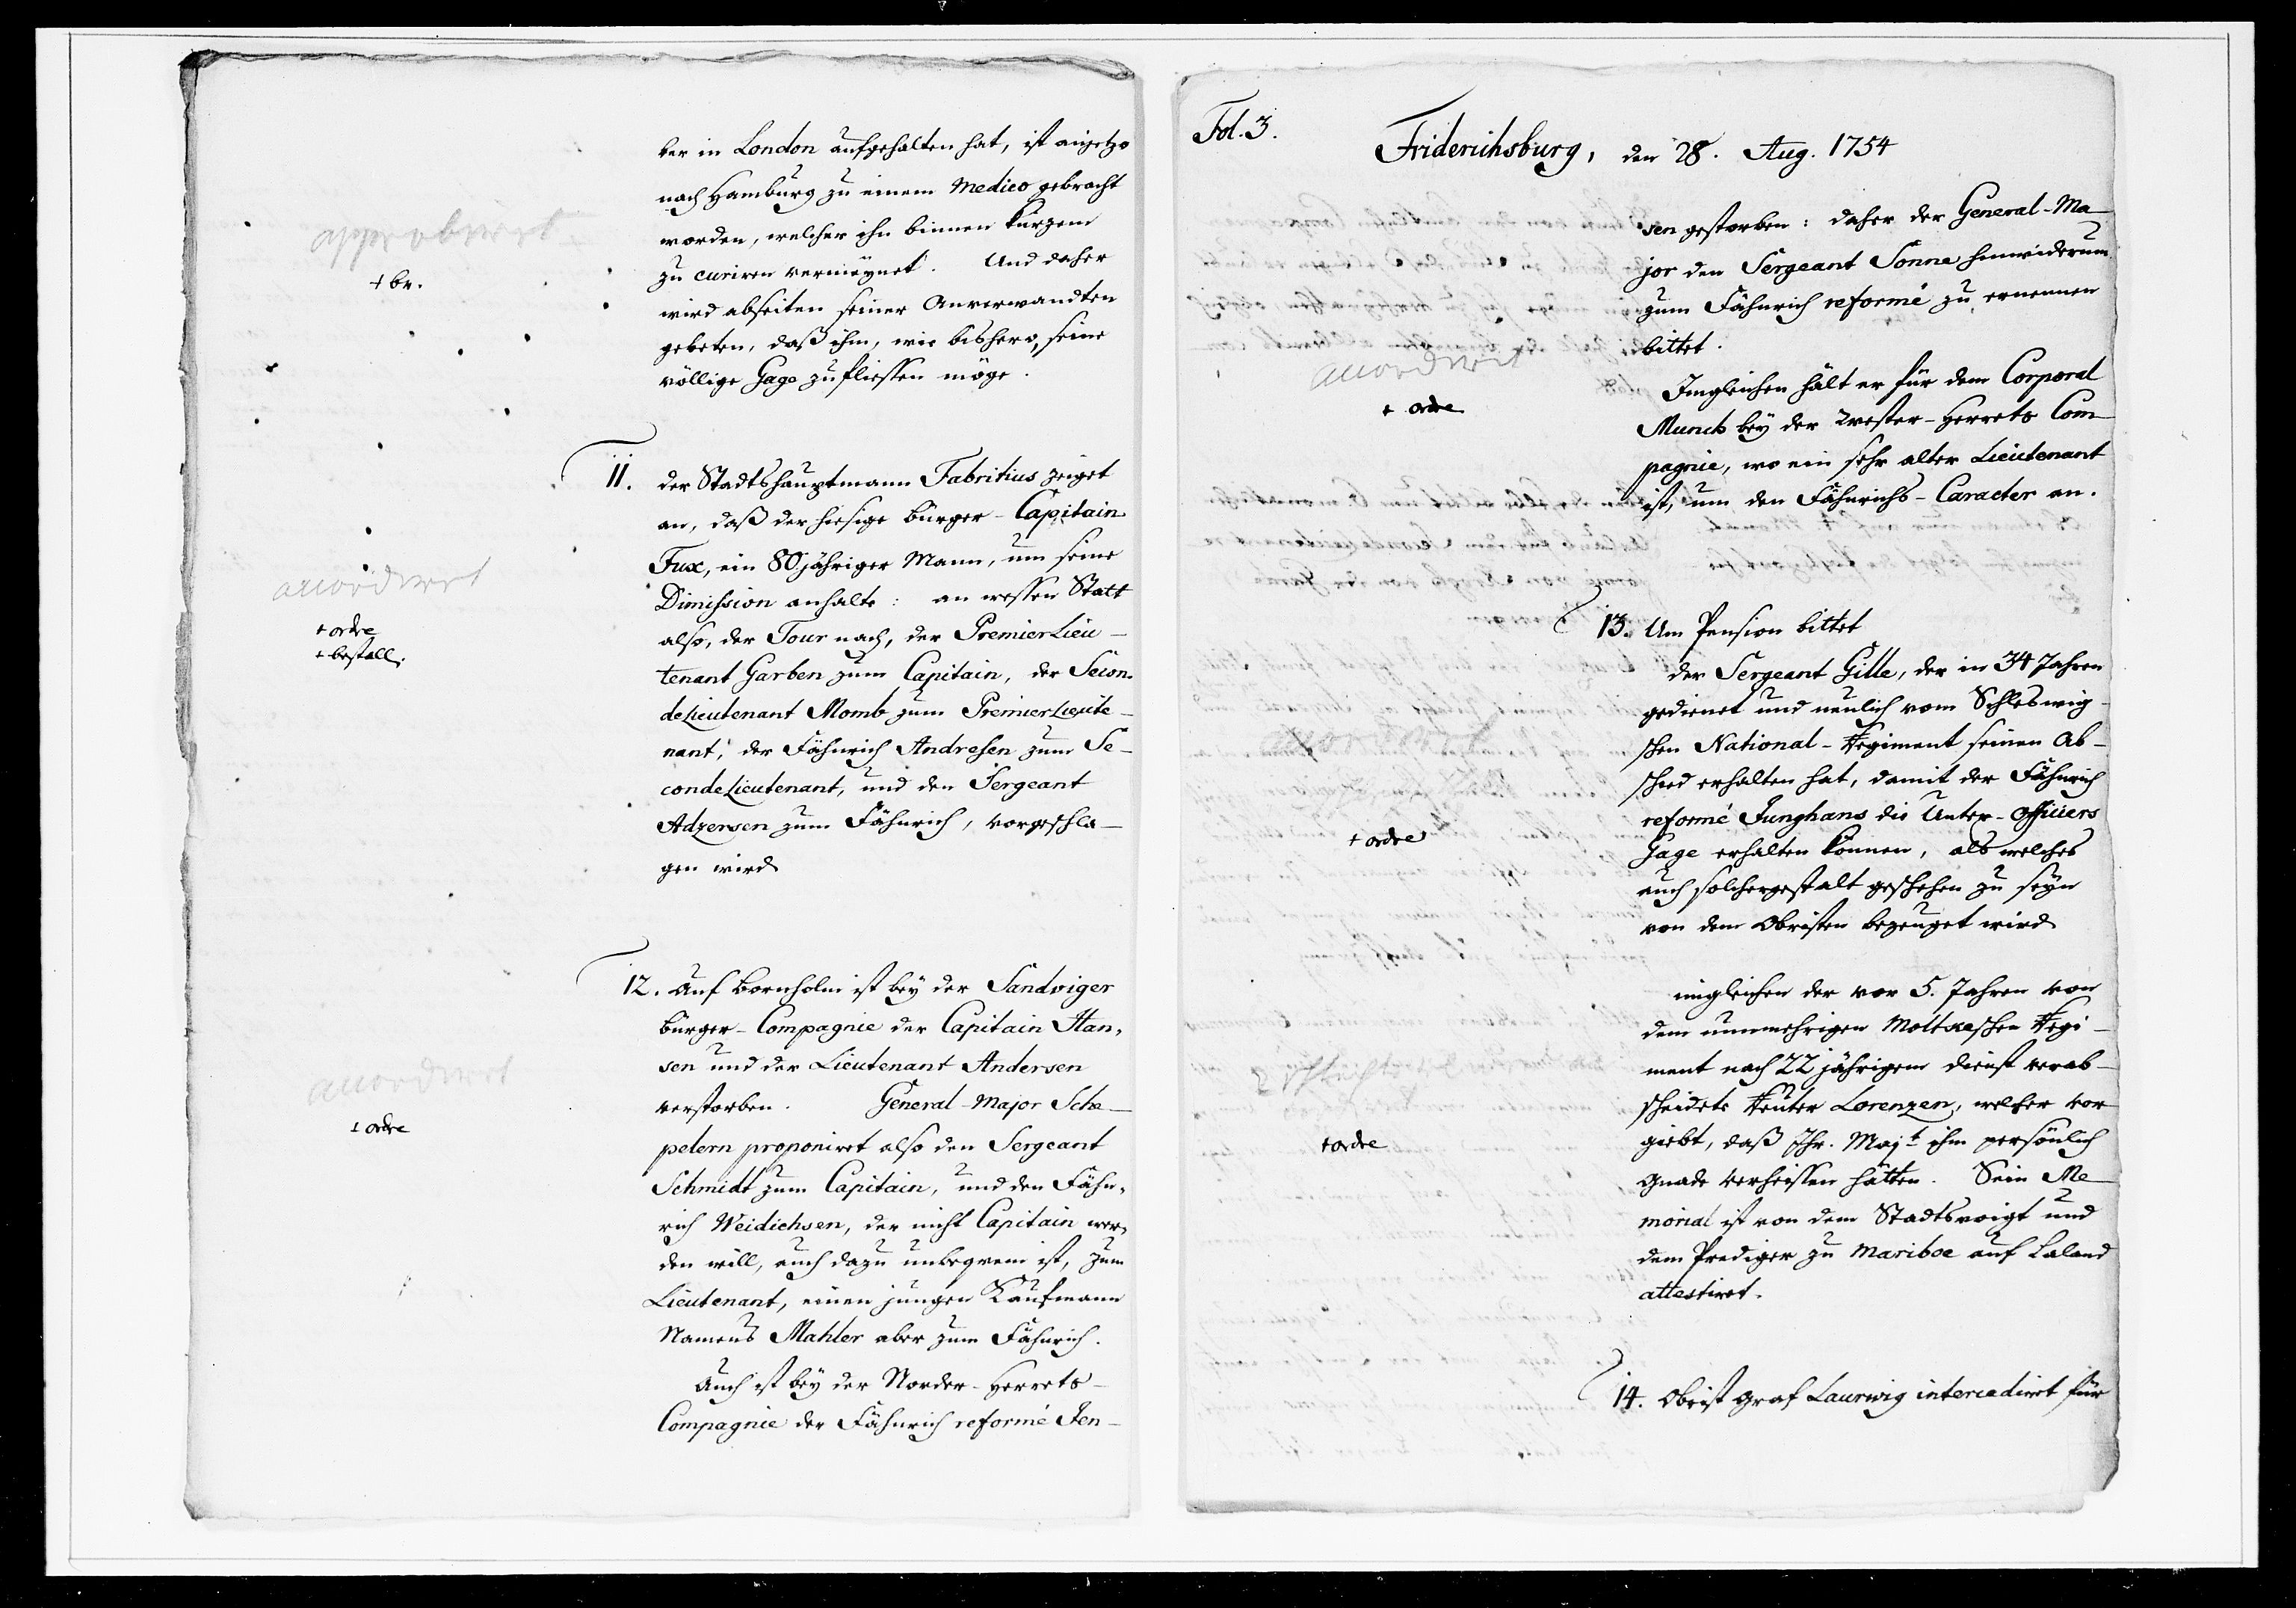 ker in London aufgehalten hat, ist anjetzo
nach Hamburg zu einem Medico gebracht
worden, welcher ihn binnen kurzem
zu curiren vermeynet. Und daher
wird abseiten seiner Anverwandten
gebeten, daß ihm, wie bishero, seine
völlige Gage zufliessen möge.
approbirt
+ br.
11. der Stadtshauptmann Fabritius zeiget
an, daß der hiesige Bürger-Capitain
Fux, ein 80jähriger Mann, um seine
Dimission anhalte: an wessen Statt
also, der Tour nach, der PremierLieu-
tenant Garben zum Capitain, der Secon-
deLieutenant Momb zum PremierLieute-
nant, der Fähnrich Andresen zum Se-
condeLieutenant, und den Sergeant
Adzersen zum Fähnrich, vorgeschla-
gen wird
accordirt
+ ordre
+ bestall.
12. Auf Bornholm ist bey der Sandviger
Bürger-Compagnie der Capitain Han-
sen und der Lieutenant Andersen
verstorben. General-Major Sche-
pelern proponiret also den Sergeant
Schmidt zum Capitain, und den Fähn-
rich Weidichsen, der nicht Capitain wer-
den will, auch dazu unbequem ist, zum
Lieutenant, einen jungen Kaufmann
Namens Mahler aber zum Fähnrich.
accordirt
+ ordre
Auch ist bey der Norder-Herrets-
Compagnie der Fähnrich reformé Jen-
Fol. 3.
Friderichsburg, den 28. Aug. 1754
sen gestorben: daher der General-Ma-
jor den Sergeant Sonne hinwiderum
zum Fähnrich reformé zu ernennen
bittet.
accordirt
+ ordre
Imgleichen hält er für dem Corporal
Munch bey der Wester-Herrets Com-
pagnie, wo ein sehr alter Lieutenant
ist, um den Fähnrichs-Caracter an.
13. Um Pension bittet
der Sergeant Gille, der in 34 Jahren
gedienet und neulich vom Schleswig-
schen National-Regiment seinen Ab-
schied erhalten hat, damit der Fähnrich
reformé Junghans die Unter-Officiers
Gage erhalten können, als welches
auch solchergestalt geschehen zu seyn
von dem Obristen bezeuget wird
+ ordre
imgleichen der vor 5. Jahren von
dem nunmehrigen Moltkeschen Regi-
ment nach 22 jährigem Dienst verab-
scheidete Reuter Lorenzen, welcher vor-
giebt, daß Ihr. Majt. ihm persönlich
Gnade verheissen hätten. Sein Me-
morial ist von dem Stadtsvoigt und
dem Prediger zu Mariboe auf Laland
attestiret.
+ ordre
14. Obrist Graf Laurwig intercediret für